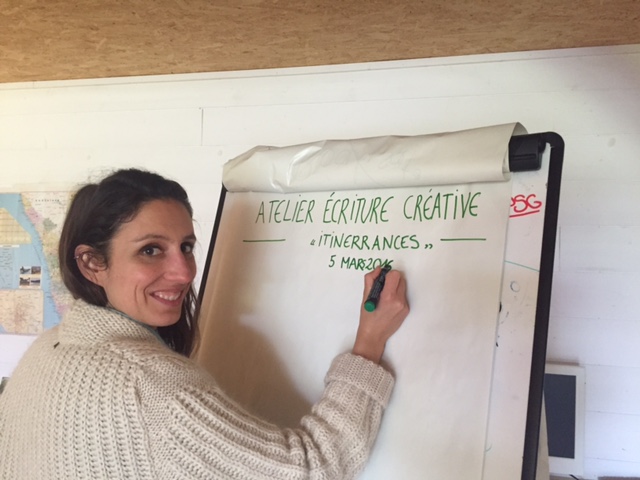 ATELIER ÉCRITURE CRÉATIVE
« ITINERRANCES »
5 MARS 2016
PSG